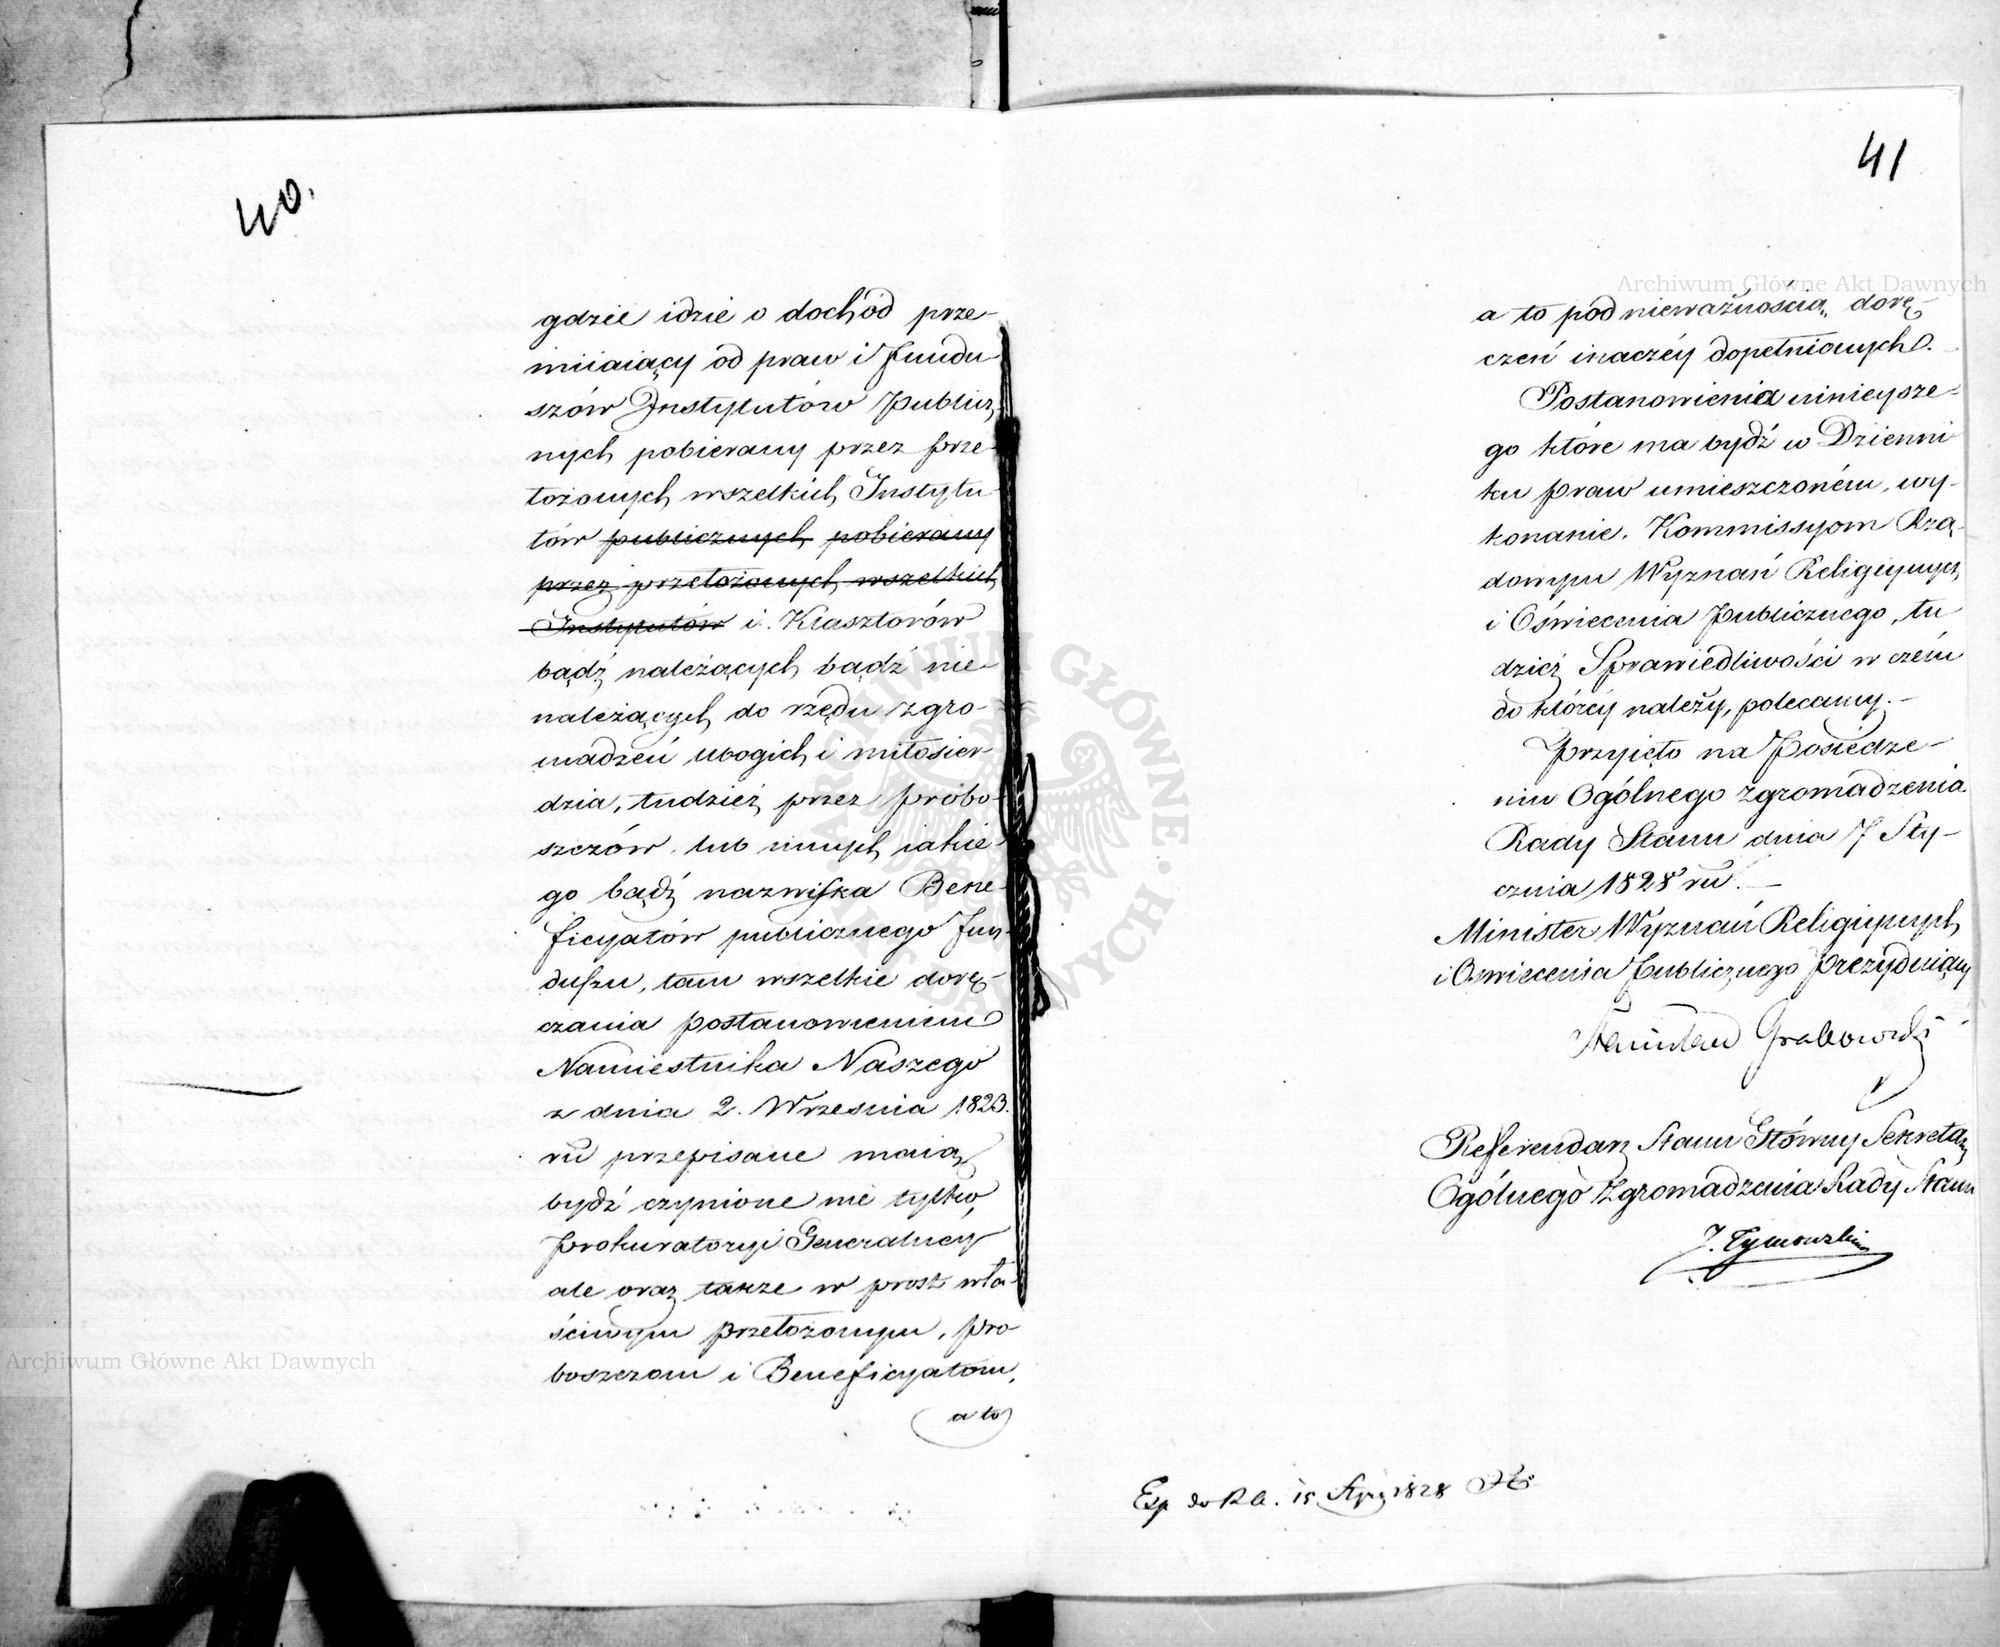 40.
gdzie idzie o dochód prze-
miiaiący od praw i fundu
szów Instytutów Publicz
nych pobierany przez prze
łożonych wszelkich Instytu
tów publicznych pobierany
przez przełożonych wszelkich
Instytutów i Klasztorów
bądź należących bądź nie
należących do rzędu zgro-
madzeń ubogich i miłosier
dzia, tudzież przez probo-
szczów lub innych iakie-
go bądź nazwiska Bene-
ficyatów publicznego fun-
duszu, tam wszelkie dorę-
czania postanowieniem
Namiestnika Naszego
z dnia 2. Września 1823.
ru przepisane maią
bydź czynione nie tylko,
Prokuratoryi Generalney
ale oraz także w prost wła-
ściwym przełożonym, pro-
boszczom i Beneficyatom,
a to
41
a to pod nieważnością dorę-
czeń inaczéy dopełnionych.
Postanowienia ninieysze-
go które ma bydź w Dzienni
ku praw umieszczoném, wy-
konanie, Kommissyom Rzą-
dowym Wyznań Religiynych
i Oświecenia Publicznego, tu
dzież Sprawiedliwości w czém
do któréy należy, polecamy.-
Przyięto na Posiedze-
niu Ogólnego zgromadzenia
Rady Stanu dnia 7 Sty-
cznia 1828 ru. -
Minister Wyznań Religiynych
i Oświecenia Publicznego Prezyduiący
Stanisław Grabowski
Referendarz Stanu Główny Sekretarz
Ogólnego Zgromadzenia Rady Stanu
J. Tymowski
Exp do R A. 15 Stycz 1828
Archiwum Główne Akt Dawnych
Archiwum Główne Akt Dawnych
ARCHIWUM GŁÓWNE AKT DAWNYCH